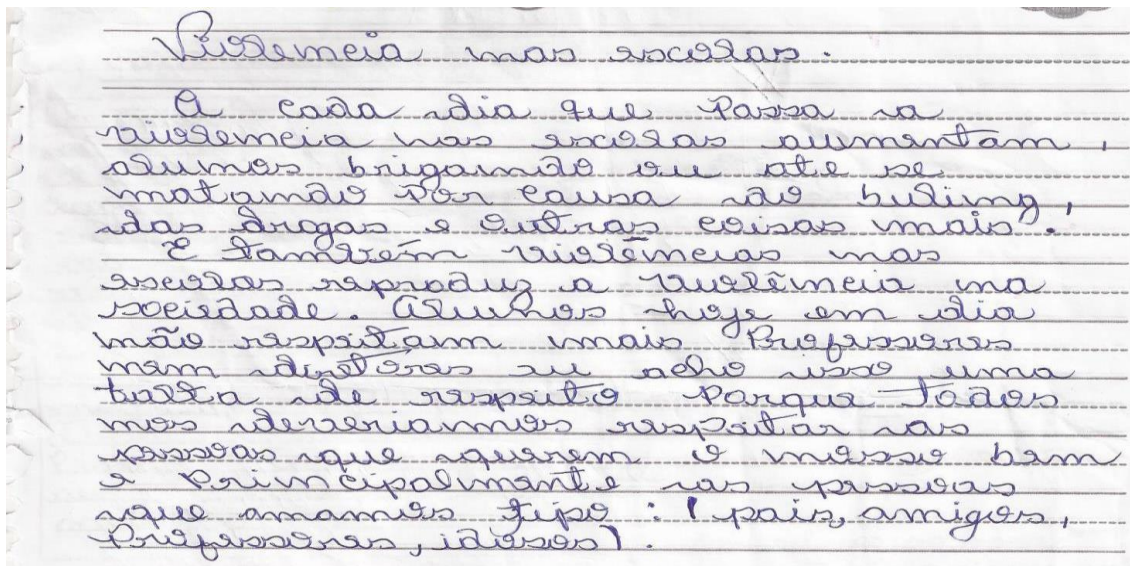 Violencia nas escolas.
A cada dia que Passa a
violencia nas escolas aumentam,
alunos brigando ou até se
matando Por causa do buling,
das drogas e outras coisas mais.
E também violências nas
escolas reproduz a violência na
sociedade. Alunos hoje em dia
não respeitam mais Professores
nem diretores eu acho isso uma
falta de respeito Porque todos
nos deveriamos respeitar as
pessoas que querem o nosso bem
e Principalmente as pessoas
que amamos tipo : ( pais, amigos,
Professores, idosos).